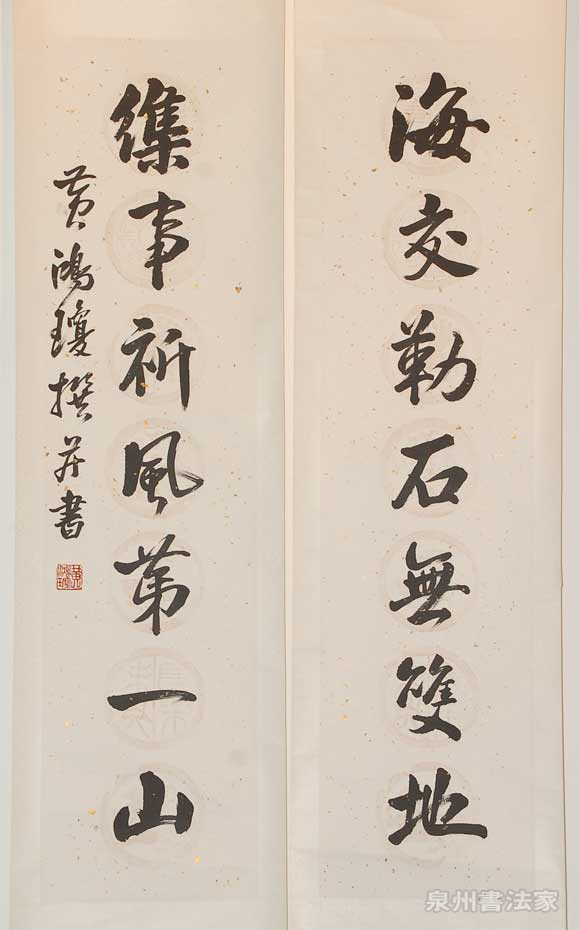 海交勒石無雙地
事祈風第一山
黄鴻瓊撰并書
泉州書法家